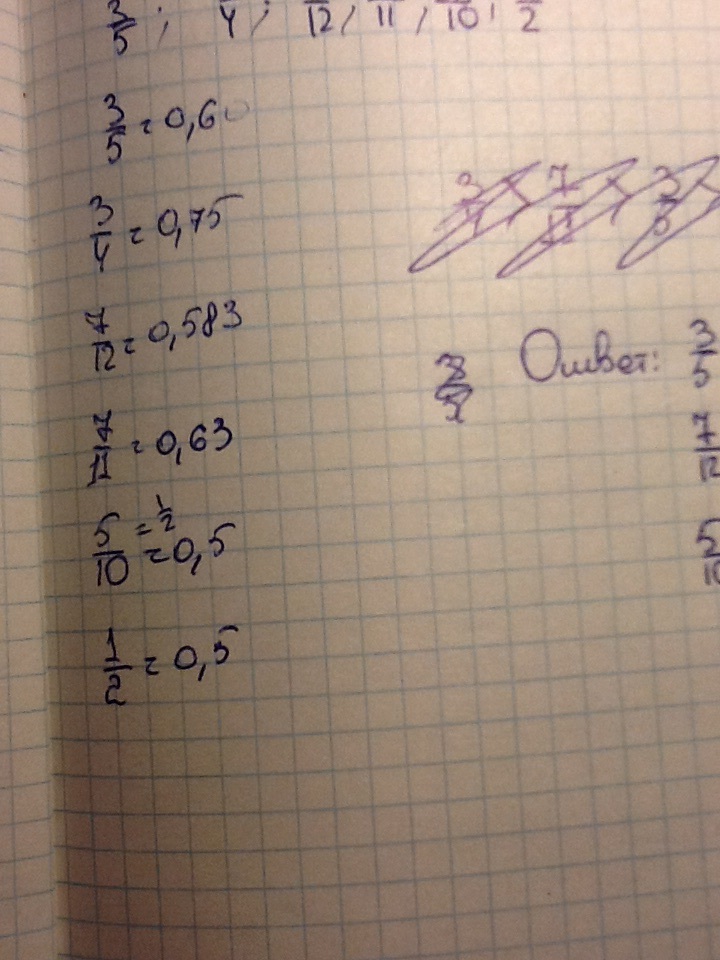 3/5 ; /4 ; /12 , /11 , /10 , /2
3/5 = 0,60
3/4 = 0,75
7/12 = 0,583
7/11 = 0,63
5/10 = 1/2 = 0,5
1/2 = 0,5
Ответ: 3/5
7/12
5/10